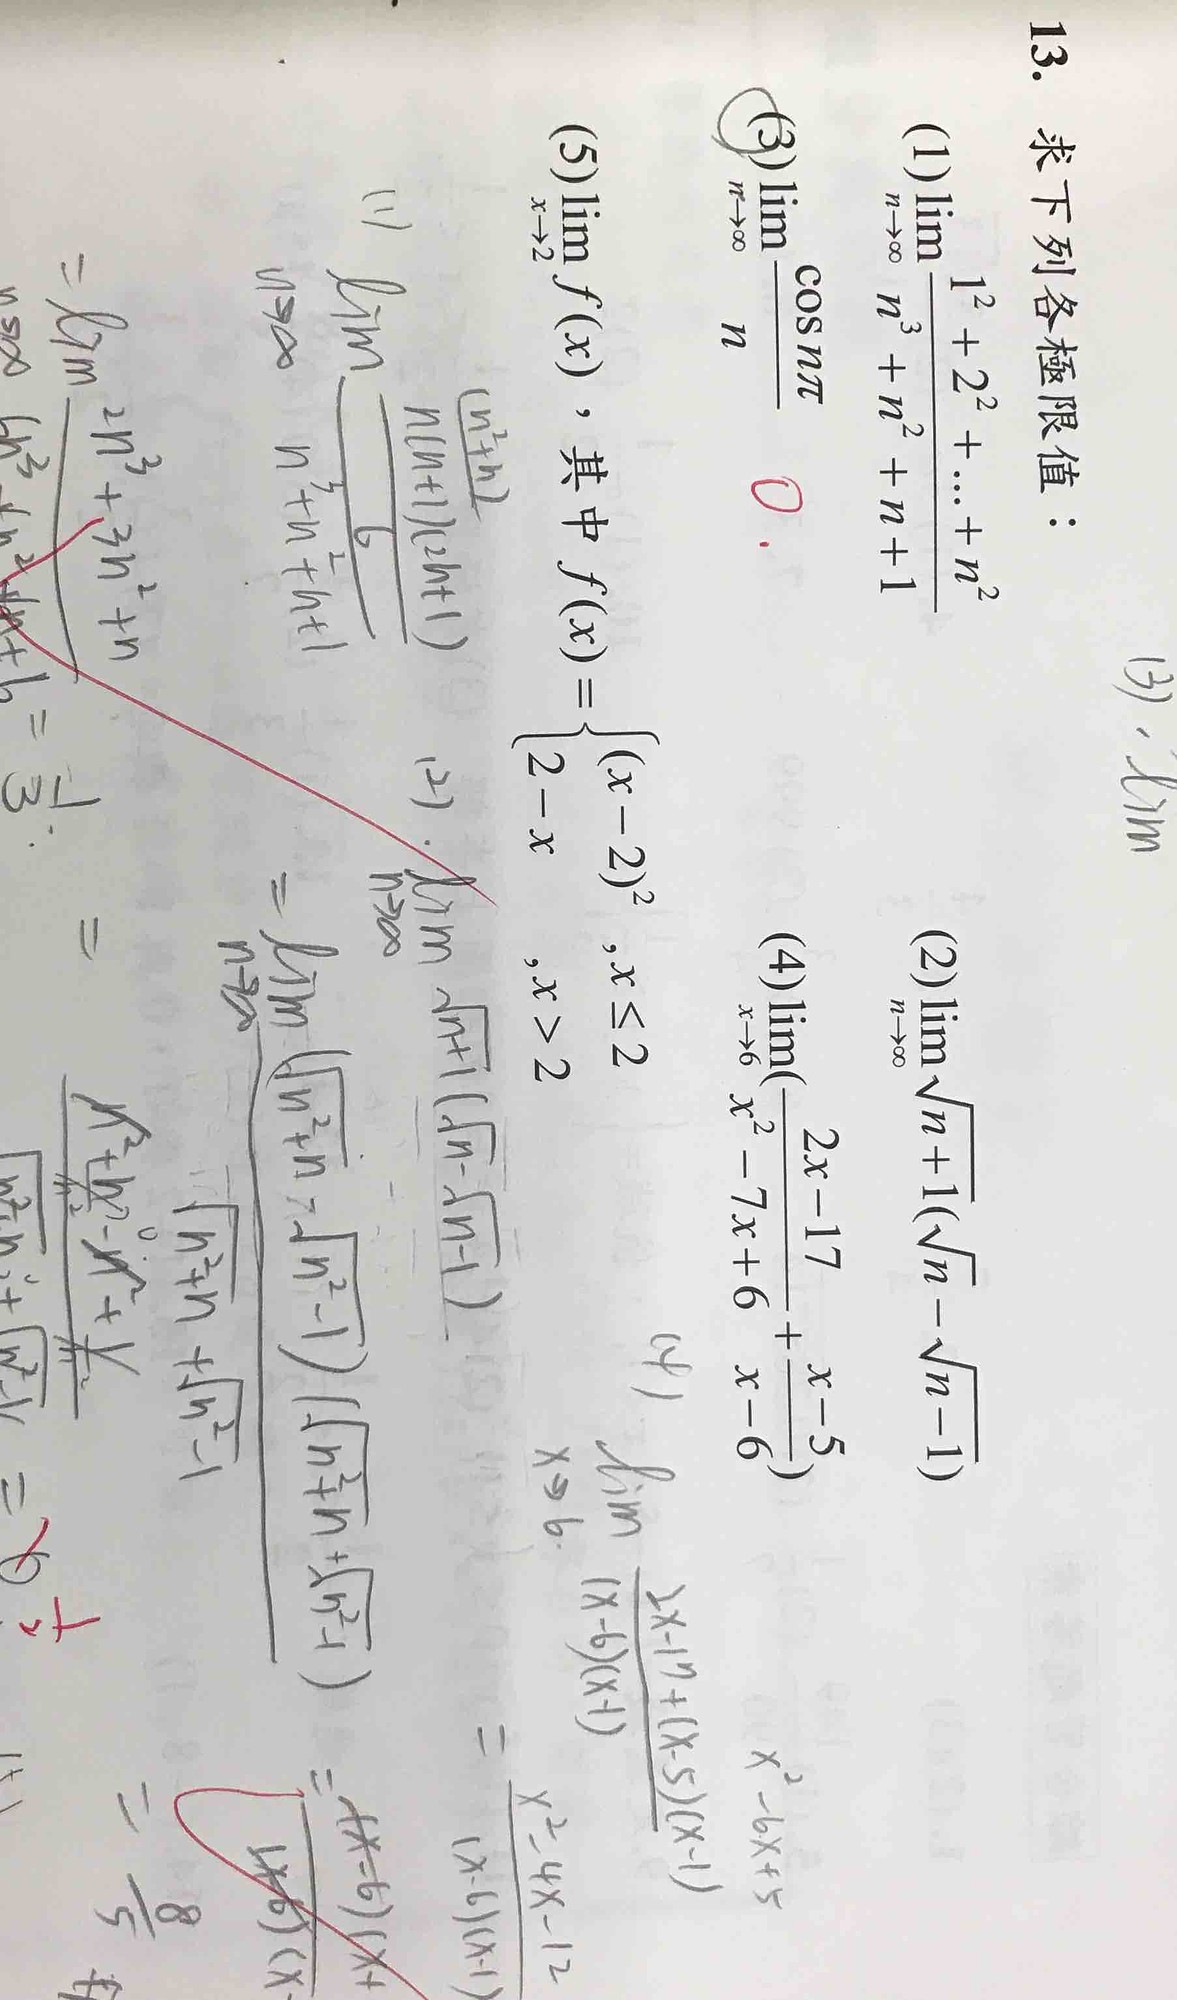 (3). lim
13. 求下列各極限值：
(1) lim_{n→∞} (1² + 2² + ... + n²)/(n³ + n² + n + 1)
(2) lim_{n→∞} √(n+1)(√n − √(n−1))
(3) lim_{n→∞} (cos nπ)/n
0.
(4) lim_{x→6} ((2x−17)/(x²−7x+6) + (x−5)/(x−6))
(5) lim_{x→2} f(x)，其中 f(x) = { (x−2)² , x ≤ 2
2−x , x > 2
(1) lim_{n→∞} (n(n+1)(2n+1)/6)/(n³+n²+n+1)
(n²+n)
= lim_{n→∞} (2n³+3n²+n)/
= 1/3.
(2). lim_{n→∞} √(n+1)(√n−√(n−1))
= lim_{n→∞} (√(n²+n) − √(n²−1))(√(n²+n)+√(n²−1))/(√(n²+n)+√(n²−1))
=
= 0
1/2
(4) lim_{x→6} (2x−17+(x−5)(x−1))/((x−6)(x−1))
x²−6x+5
= (x²−4x−12)/((x−6)(x−1))
=
= 8/5